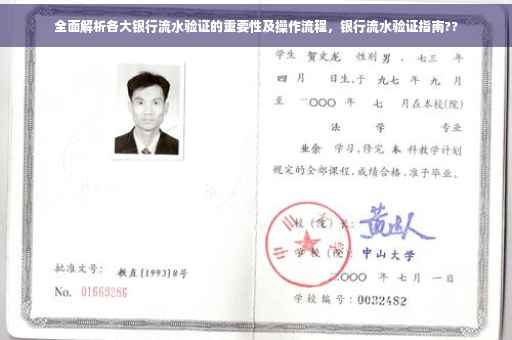 全面解析各大银行流水验证的重要性及操作流程，银行流水验证指南??
学生 贺文龙 性别 男 . 七三 年
四 月 日生,于 九七 年 九 月
至 二〇〇〇 年 七 月在本校(院)
法 学 专业
业余 学习,修完 本 科教学计划
规定的全部课程,成绩合格,准予毕业。
校 (院) 长:
学 校 (院): 中山大学
二〇〇〇 年 七 月 一 日
学校编号: 0032482
批准文号: 教直[1993]8号
No. 01663286